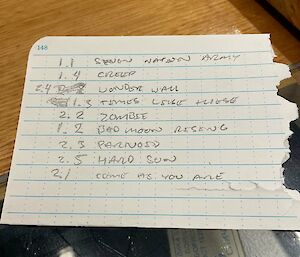 148
1.1 SEVEN NATION ARMY
1.4 CREEP
2.4 WONDER WALL
1.3 TIMES LIKE THESE
2.2 ZOMBIE
1.2 BAD MOON RISING
2.3 PARNOID
2.5 HARD SUN
2.1 COME AS YOU ARE